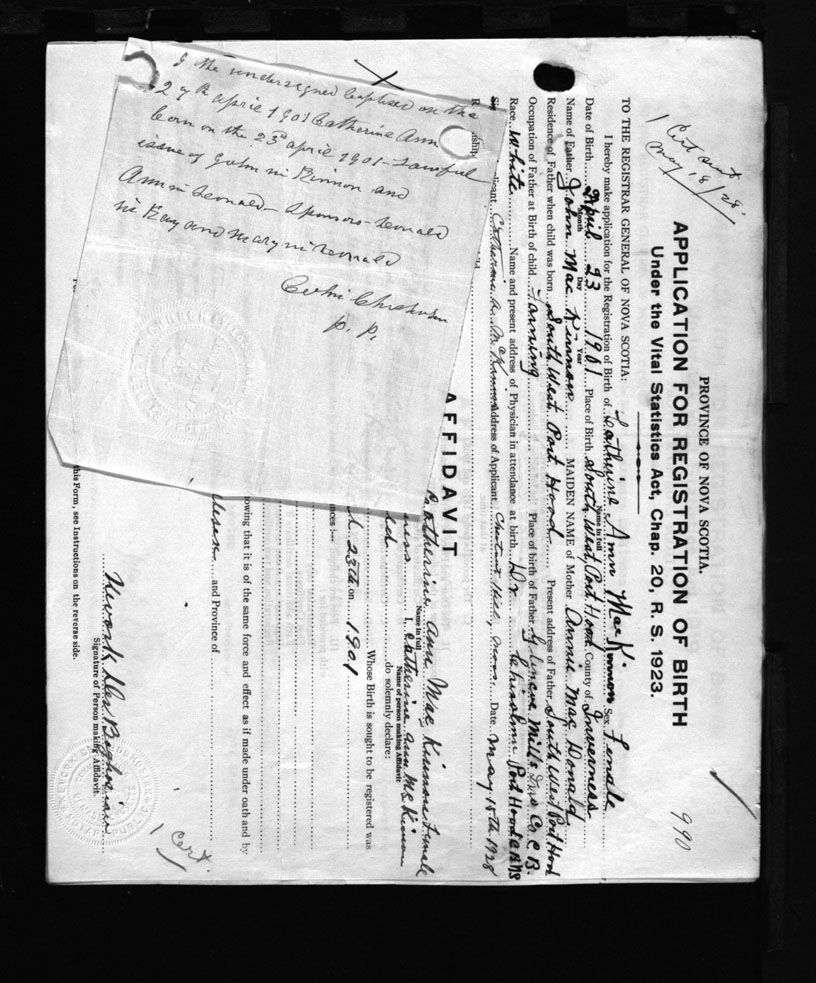 I the undersigned baptised on the
27th April 1901 Catherine Ann
born on the 23rd April 1901 - Lawful
issue of John McKinnon and
Ann McDonald - Sponsors - Donald
McKay and Mary McDonald
Colin Chisholm
P. P.
1 Cert sent
May 18/28.
990
PROVINCE OF NOVA SCOTIA.
APPLICATION FOR REGISTRATION OF BIRTH
Under the Vital Statistics Act, Chap. 20, R. S. 1923.
TO THE REGISTRAR GENERAL OF NOVA SCOTIA:
I hereby make application for the Registration of Birth of Catherine Ann MacKinnon Sex Female
Name in full
Date of Birth April 23 1901 Place of Birth South West Port Hood County of Inverness
Month Day Year
Name of Father John MacKinnon MAIDEN NAME of Mother Annie MacDonald
Residence of Father when child was born South West Port Hood Present address of Father South West Port Hood
Occupation of Father at Birth of child Farming Place of birth of Father Glencoe Mills Inv. Co. C. B.
Race White Name and present address of Physician in attendance at birth Dr Chisholm Port Hood C B NS
plicant Catherine A. McKinnon Address of Applicant Chestnut Hill, Mass. Date May 15th 1928
AFFIDAVIT
Catherine Ann MacKinnon Female
Name in full
I, Catherine Ann McKinnon
Name of person making Affidavit
do solemnly declare:
Whose Birth is sought to be registered was
23th on 1901
ances :—
owing that it is of the same force and effect as if made under oath and by
and Province of
Signature of Person making Affidavit.
this Form, see Instructions on the reverse side.
1 Cert.